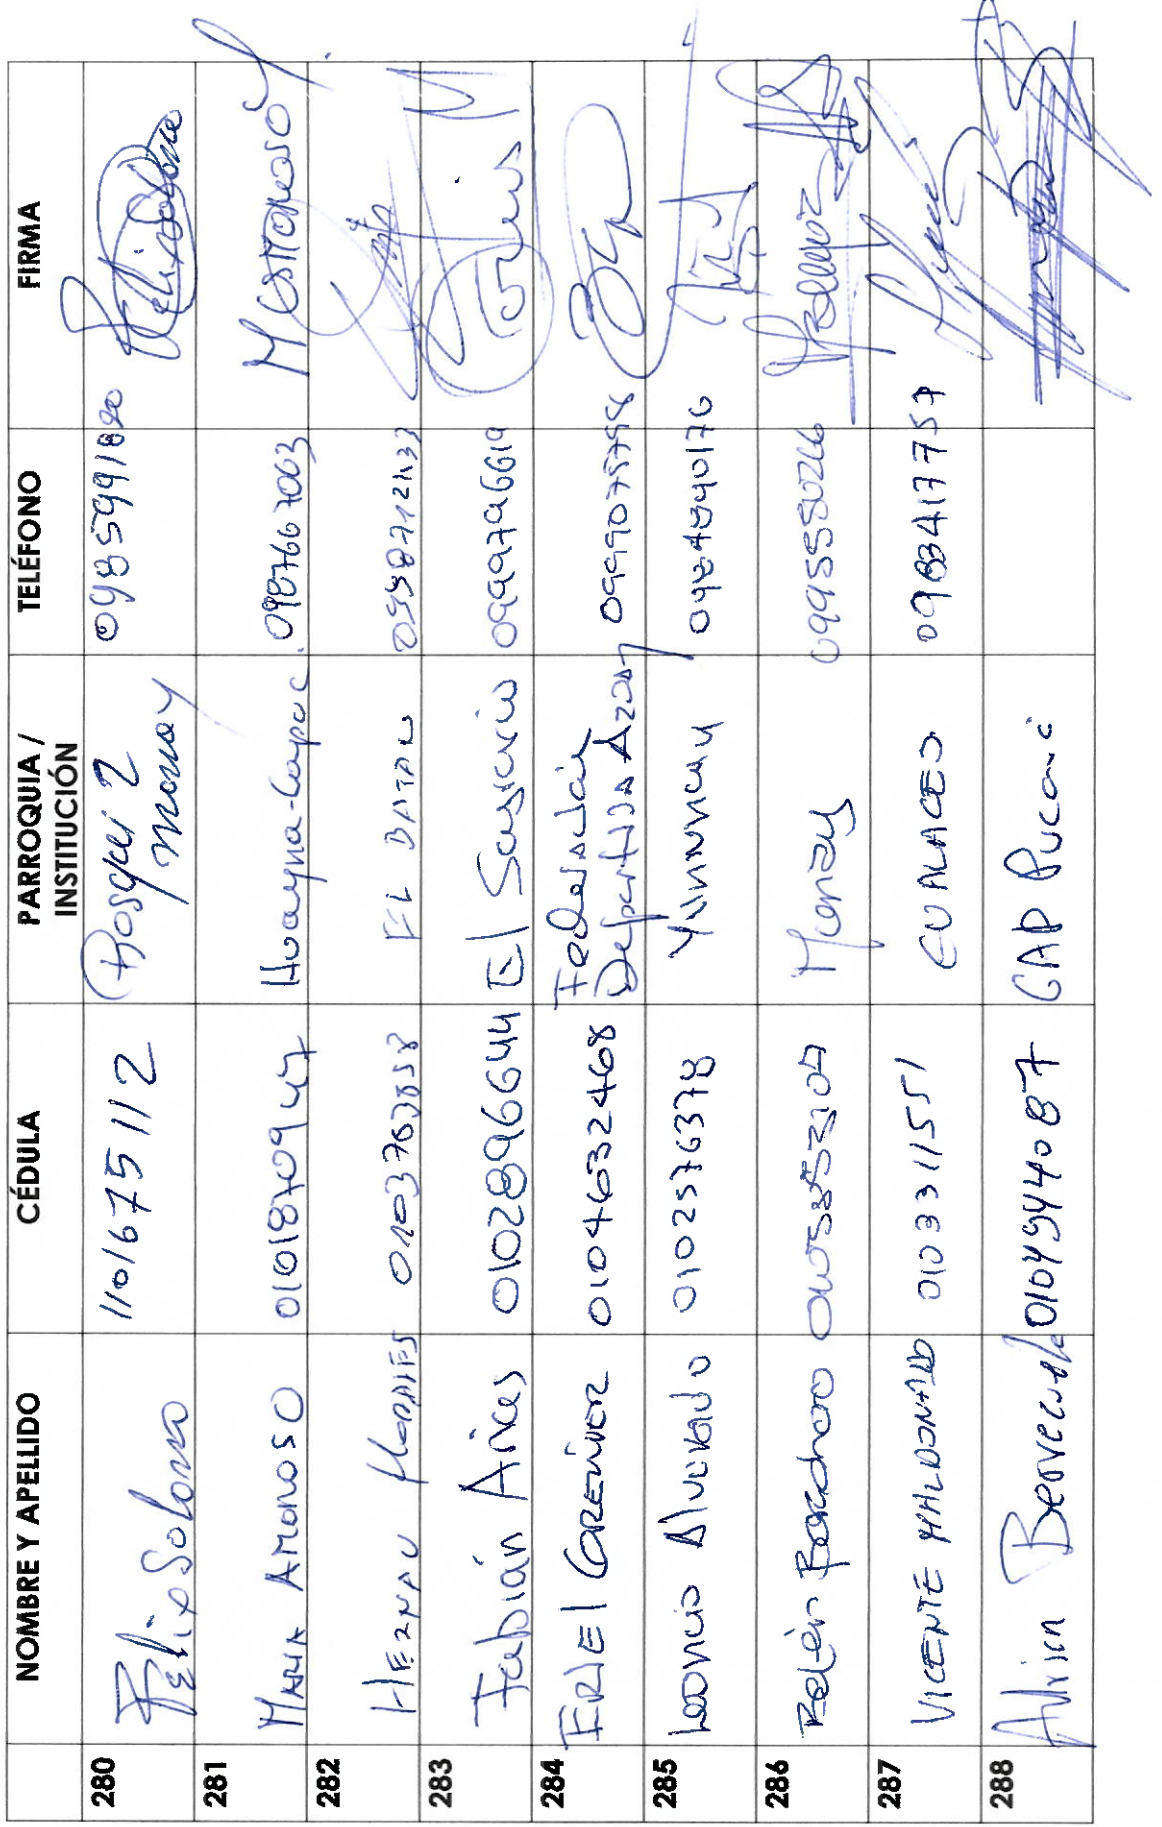 NOMBRE Y APELLIDO CÉDULA PARROQUIA / INSTITUCIÓN TELÉFONO FIRMA
280 Felix Solano 1101675112 Bosque 2 Monay 0985991820
281 MARIA AMOROSO 0101870947 Huayna-Capac 0987667063 M AMOROSO
282 HERNAN MORALES 0103763858 EL BATAN
283 Fabián Arias 0102896644 El Sagrario 0999796619
284 0104632468 Federación Deportiva Azuay 0999075798
285 Leoncio Alvarado 0102576378 Yanuncay 0984840176
286 Belén Monay 099558026
287 VICENTE MALDONADO 0103311551 GUALACEO 0983417757
288 0104944087 GAD Pucará